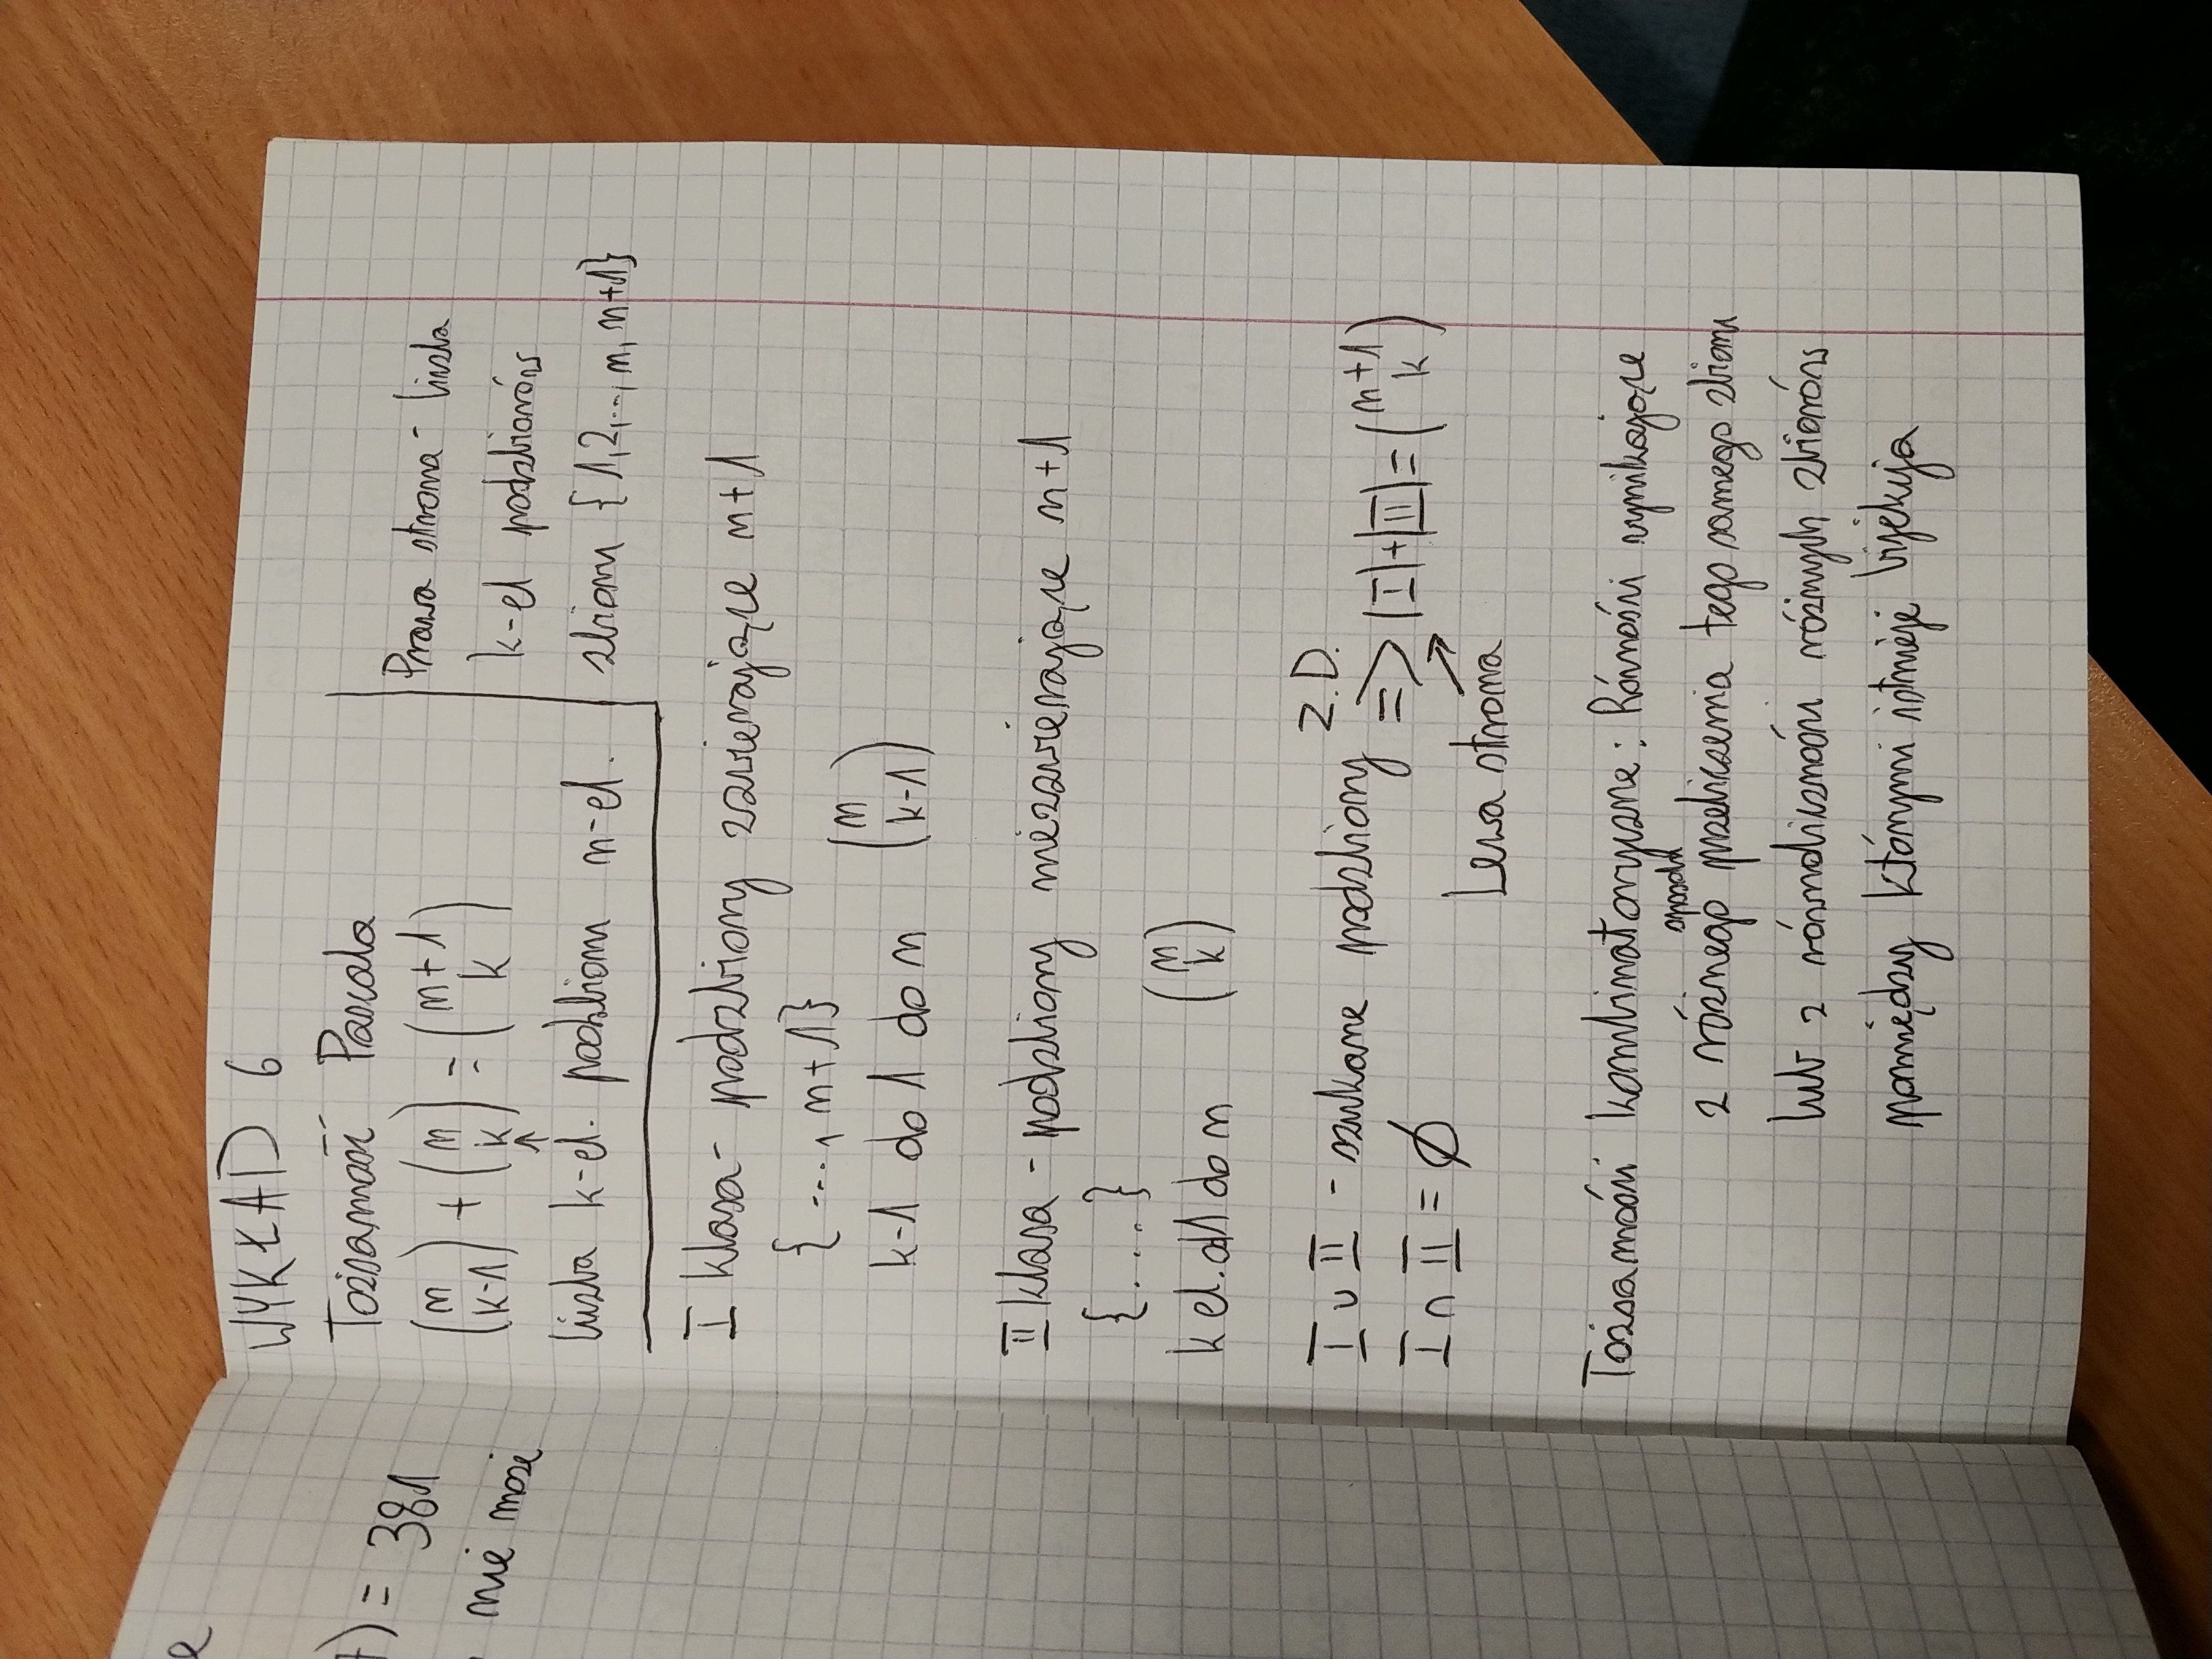 e
) = 381
nie może
WYKŁAD 6
Tożsamość Pascala
(n k-1) + (n k) = (n+1 k)
↑
liczba k-el. podzbioru n-el.
Prawa strona - liczba
k-el podzbiorów
zbioru {1,2,..., n, n+1}
I klasa - podzbiory zawierające n+1
{ ..., n+1}
k-1 do 1 do n (n k-1)
II klasa - podzbiory niezawierające n+1
{....}
k el. od 1 do n (n k)
I ∪ II - szukane podzbiory Z.D. => |I|+|II| = (n+1 k)
I ∩ II = ∅
Lewa strona
Tożsamości kombinatoryczne: Równości wynikające
sposobu
z różnego przeliczenia tego samego zbioru
lub z równoliczności różnych zbiorów
pomiędzy którymi istnieje bijekcja